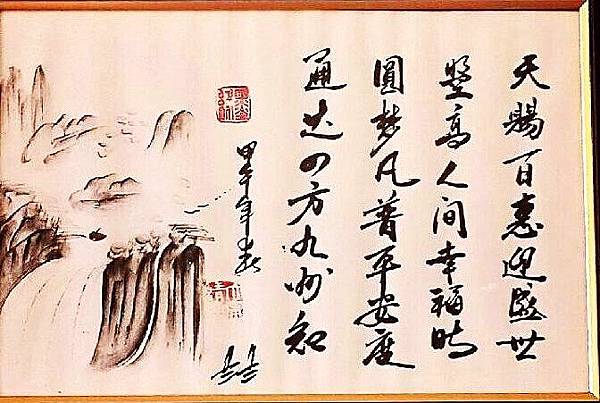 天賜百惠迎盛世
登高人间幸福時
圓梦凡普平安度
通达四方九州知
甲午年春